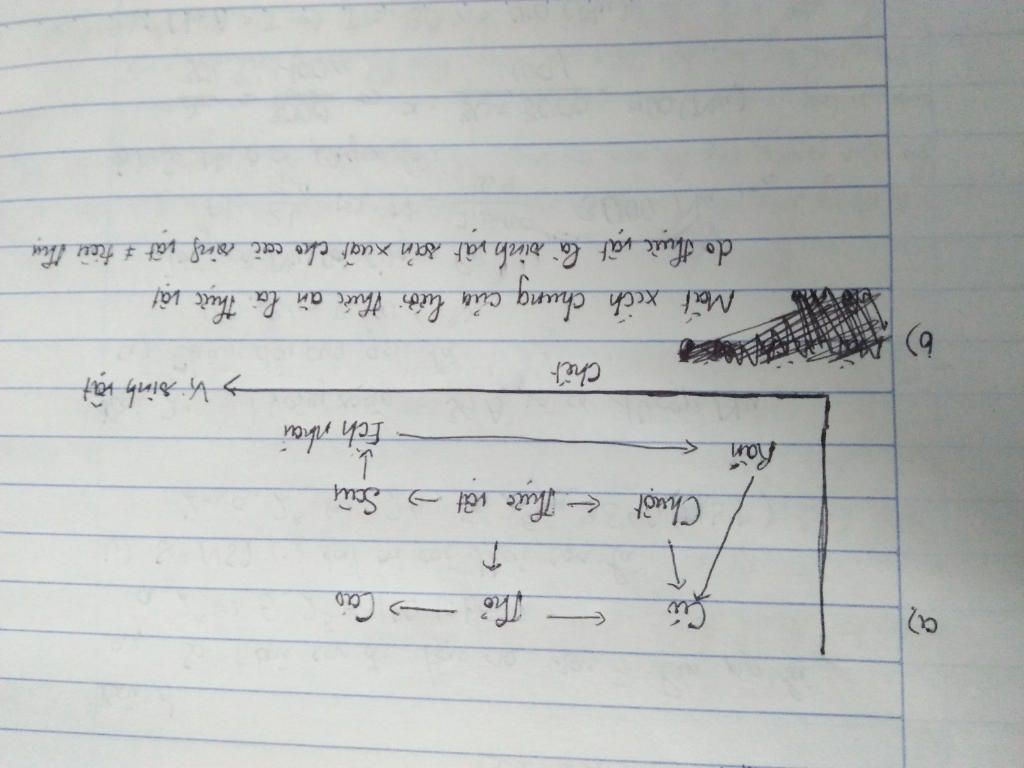 a) Cú ← Thỏ → Cáo
Chuột ← Thực vật → Sâu
Rắn ← Ếch nhái
Chết → Vi sinh vật
b)
Mắt xích chung của lưới thức ăn là thực vật
do thực vật là sinh vật sản xuất cho các sinh vật tiêu thụ